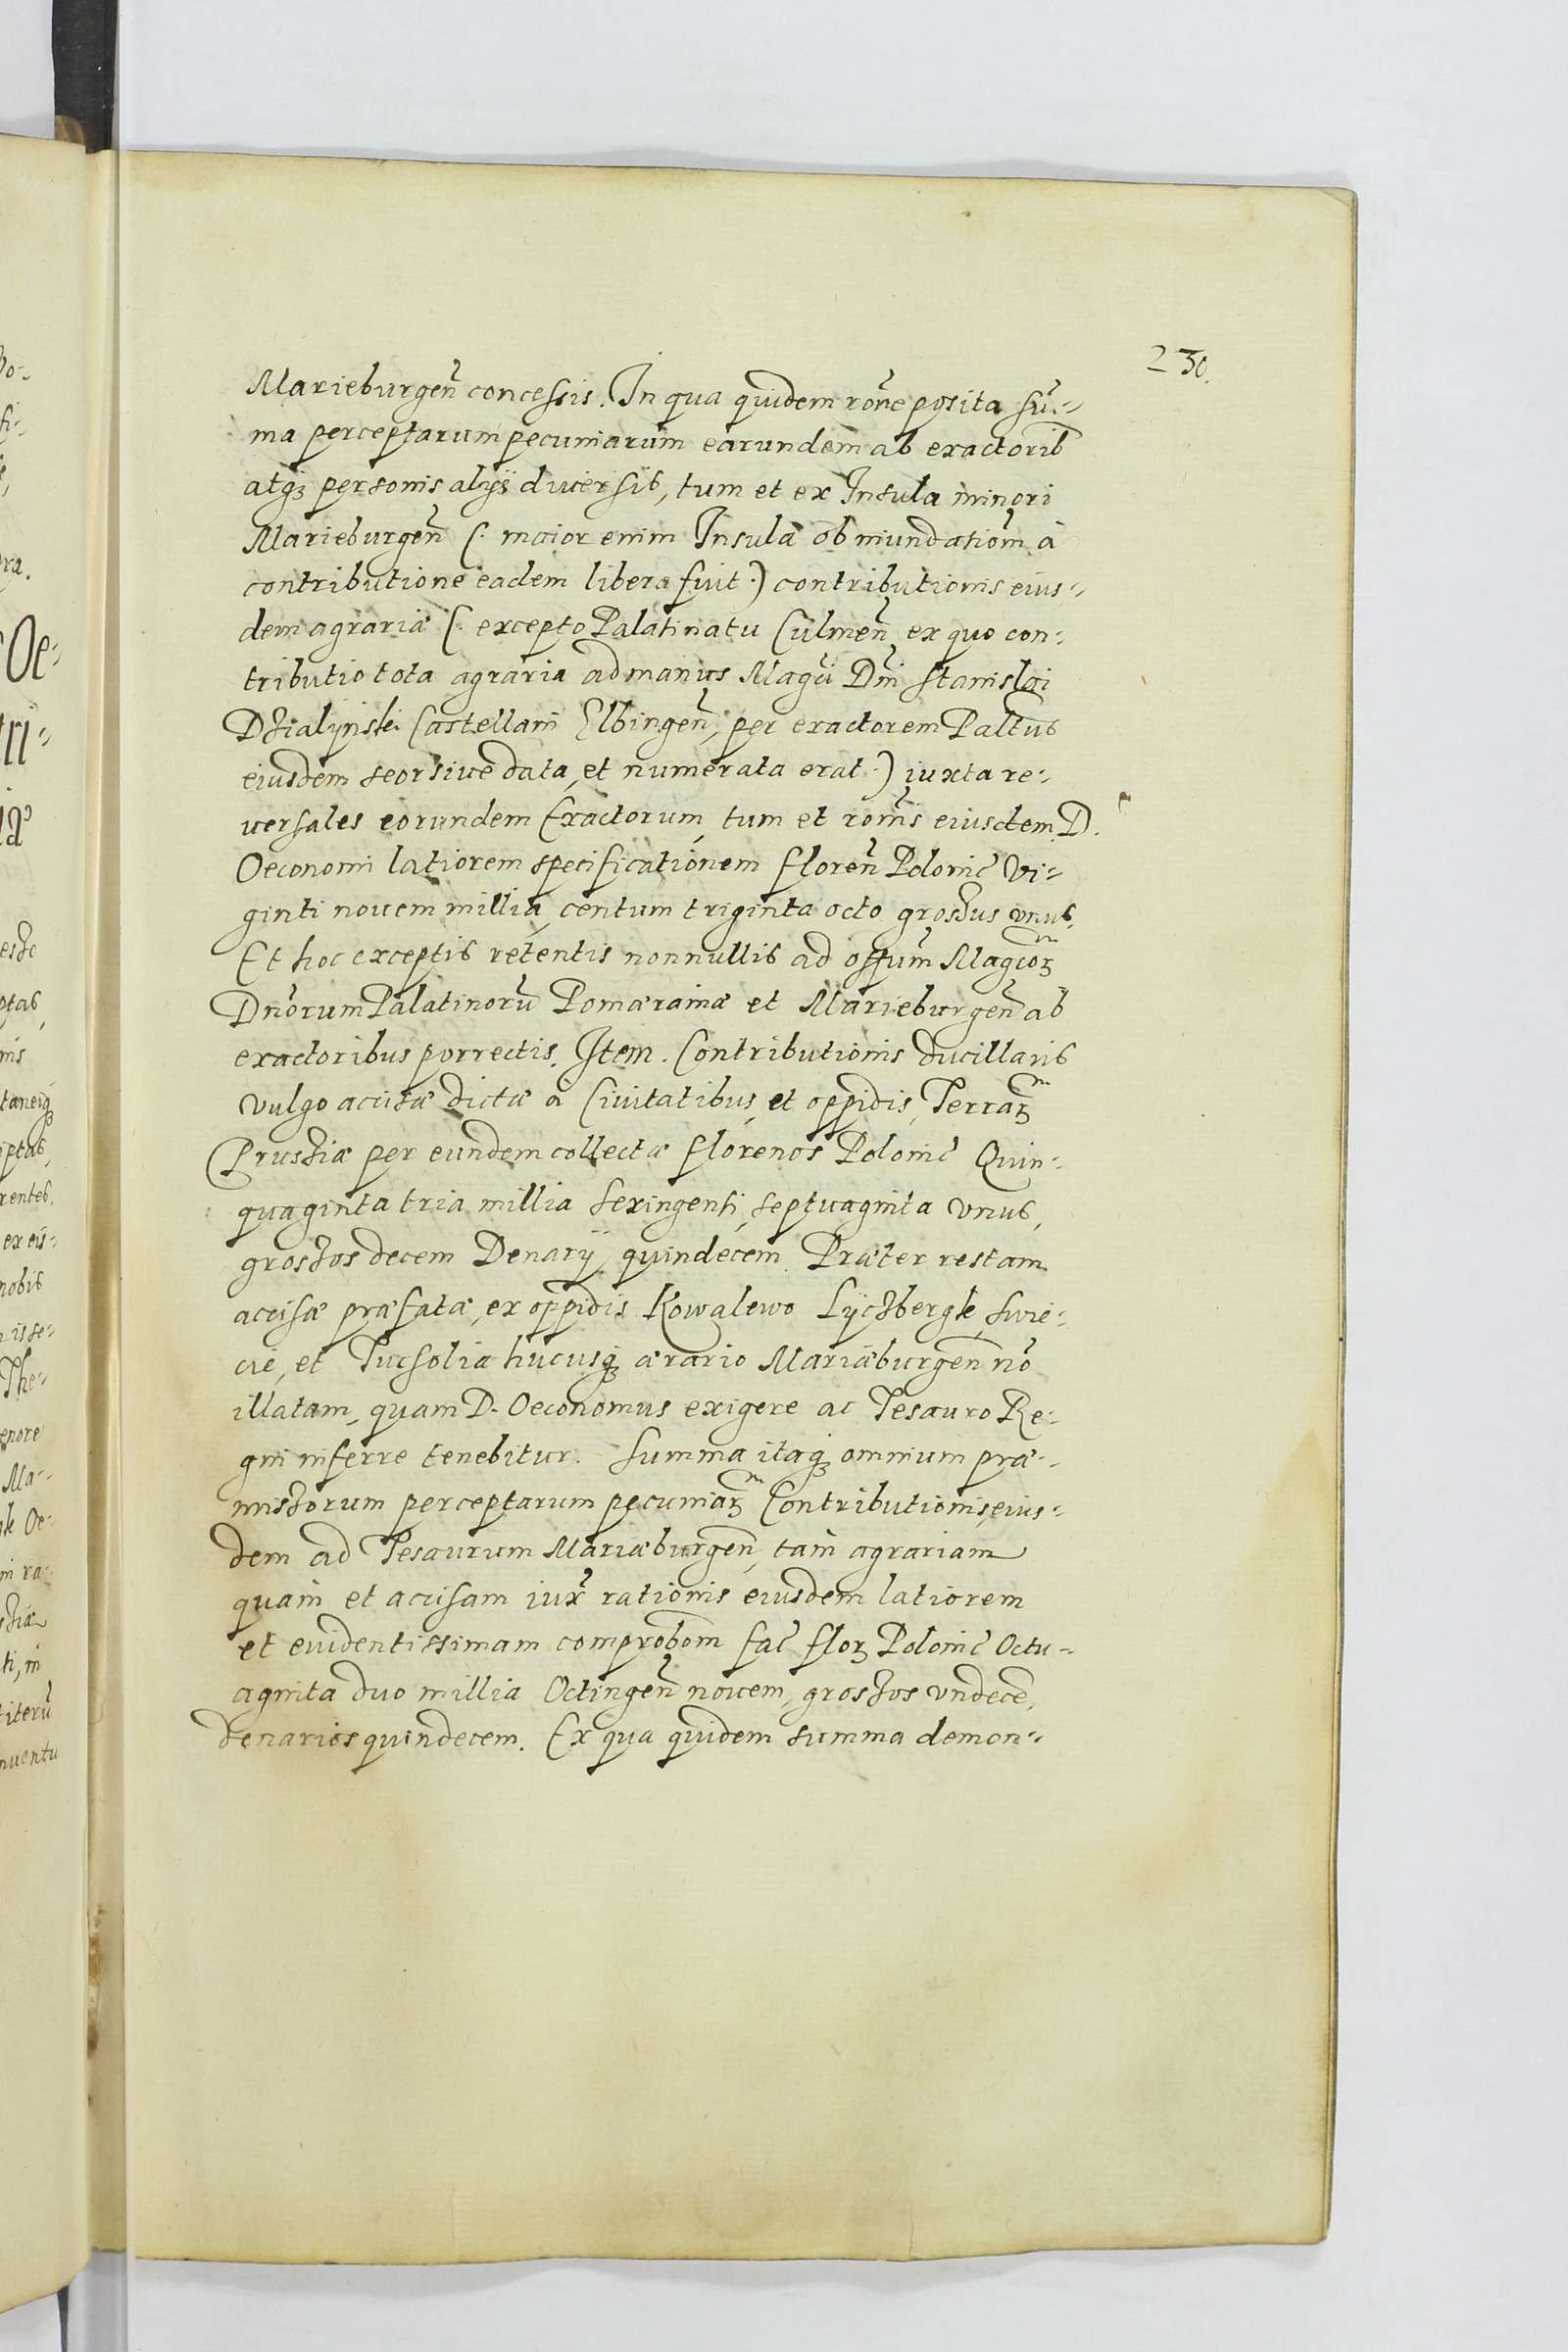 230.
Marieburgeñ concessis. In qua quidem rõne posita sũ-
ma perceptarum pecuniarum earundem ab exactorib
atq3 personis alÿs diuersis, tum et ex Insula minori
Marieburgeñ (. maior enim Insula ob inundatiom̃ à
contributione eadem libera fuit .) contributionis eius-
dem agrariæ (. excepto Palatinatu Culmeñ ex quo con-
tributio tota agraria ad manus Magci Dni Stanislai
Dzialÿnski Castellani Elbingeñ, per exactorem Paltus
eiusdem seorsiue data, et numerata erat .) iuxta re-
uersales eorundem Exactorum, tum et rõnis eiusdem D.
Oeconomi latiorem specificationem floreñ Polonic Vi-
ginti nouem millia, centum triginta octo grossus vnus.
Et hoc exceptis retentis nonnullis ad offum Magcor
Dnorum Palatinorũ Pomæraniæ et Marieburgeñ ab
exactoribus porrectis. Item. Contributionis ducillaris
vulgo accisæ dictæ à Ciuitatibus, et oppidis, Terrar
Prussiæ per eundem collectæ florenos Polonic Quin-
quaginta tria millia sexingenti, septuaginta vnus,
grossos decem Denarÿ quindecem. Præter restam
accisæ præfatæ, ex oppidis Kowalewo Lÿczbergk, Swie-
cie, et Tucsolia hucusq3 ærario Mariæburgeñ nõ
illatam, quam D. Oeconomus exigere ac Tesauro Re-
gni inferre tenebitur. Summa itaq3 omnium præ-
missorum perceptarum pecuniar Contributionis, eius-
dem ad Tesaurum Mariæburgeñ, tam agrariam
quam et accisam iux̃ rationis eiusdem latiorem
et euidentissimam comprobom fac flor Polonic Octu-
aginta duo millia Octingeñ nouem, grossos vndecẽ,
denarios quindecem. Ex qua quidem summa demon-